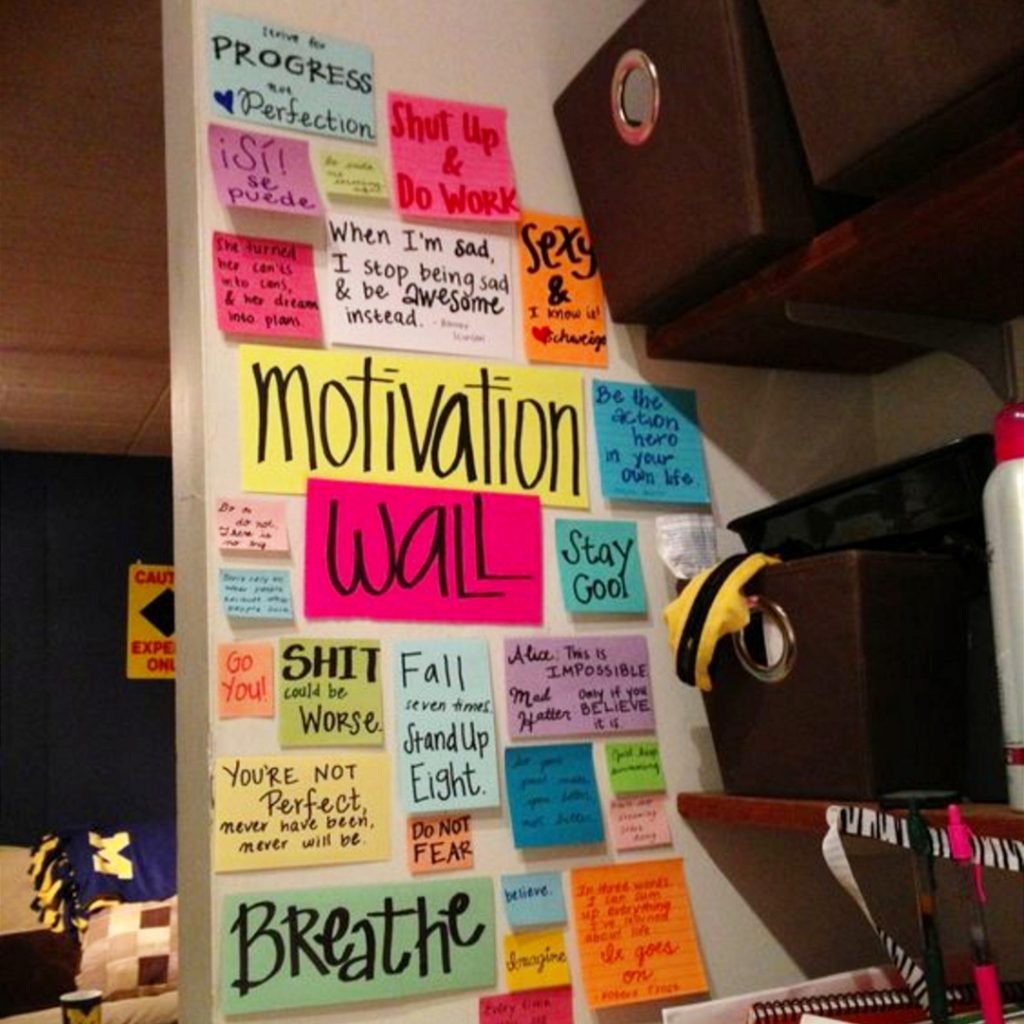 Strive for
PROGRESS
not
Perfection
Shut Up
&
Do WORK
¡Sí!
se
puede
She turned
her can'ts
into cans,
& her dream
into plans.
When I'm sad,
I stop being sad
& be awesome
instead.
Sexy
&
I know it!
motivation
wall
Be the
action
hero
in your
own life
Do or
do not.
There is
no try
Stay
Cool
CAUT
EXPE
ONL
GO
YOU!
SHIT
could be
WORSE.
Fall
seven times.
Stand Up
Eight.
Alice: This is
IMPOSSIBLE
Mad
Hatter
Only if you
BELIEVE
it is
YOU'RE NOT
Perfect,
never have been,
never will be.
DO NOT
FEAR
Let your
past make
you better,
not bitter.
Just keep
swimming
M
BReathe
believe.
Imagine
In three words,
I can sum
up everything
I've learned
about life
It goes
on
-Robert Frost